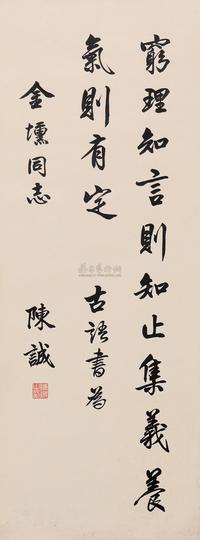 窮理知言則知止集義養
氣則有定 古語書為
金壎同志
陳誠